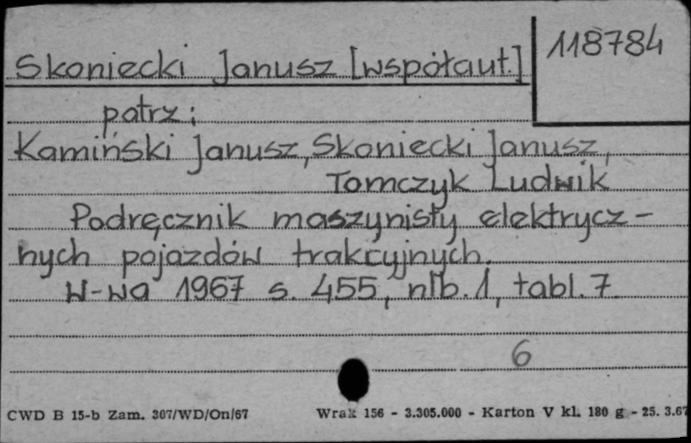 118784
Skoniecki Janusz [współaut.]
patrz:
Kamiński Janusz, Skoniecki Janusz,
Tomczyk Ludwik
Podręcznik maszynisty elektrycz-
nych pojazdów trakcyjnych.
W-wa 1967 s. 455, nlb. 1, tabl. 7.
6
CWD B 15-b Zam. 307/WD/On/67 Wrak 156 - 3.305.000 - Karton V kl. 180 g - 25. 3.67